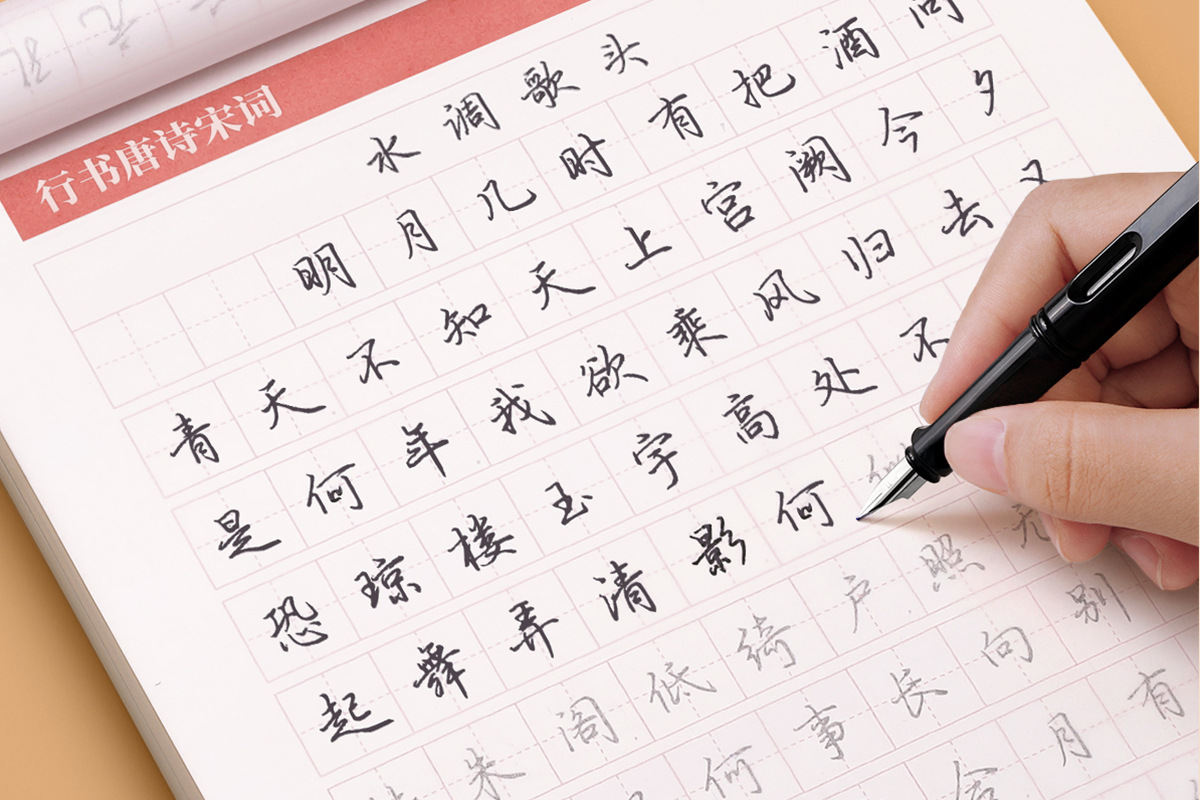 行书唐诗宋词
水调歌头
明月几时有把酒问
青天不知天上宫阙今夕
是何年我欲乘风归去又
恐琼楼玉宇高处不
起舞弄清影何
朱阁低绮户照无
何事长向别
月有